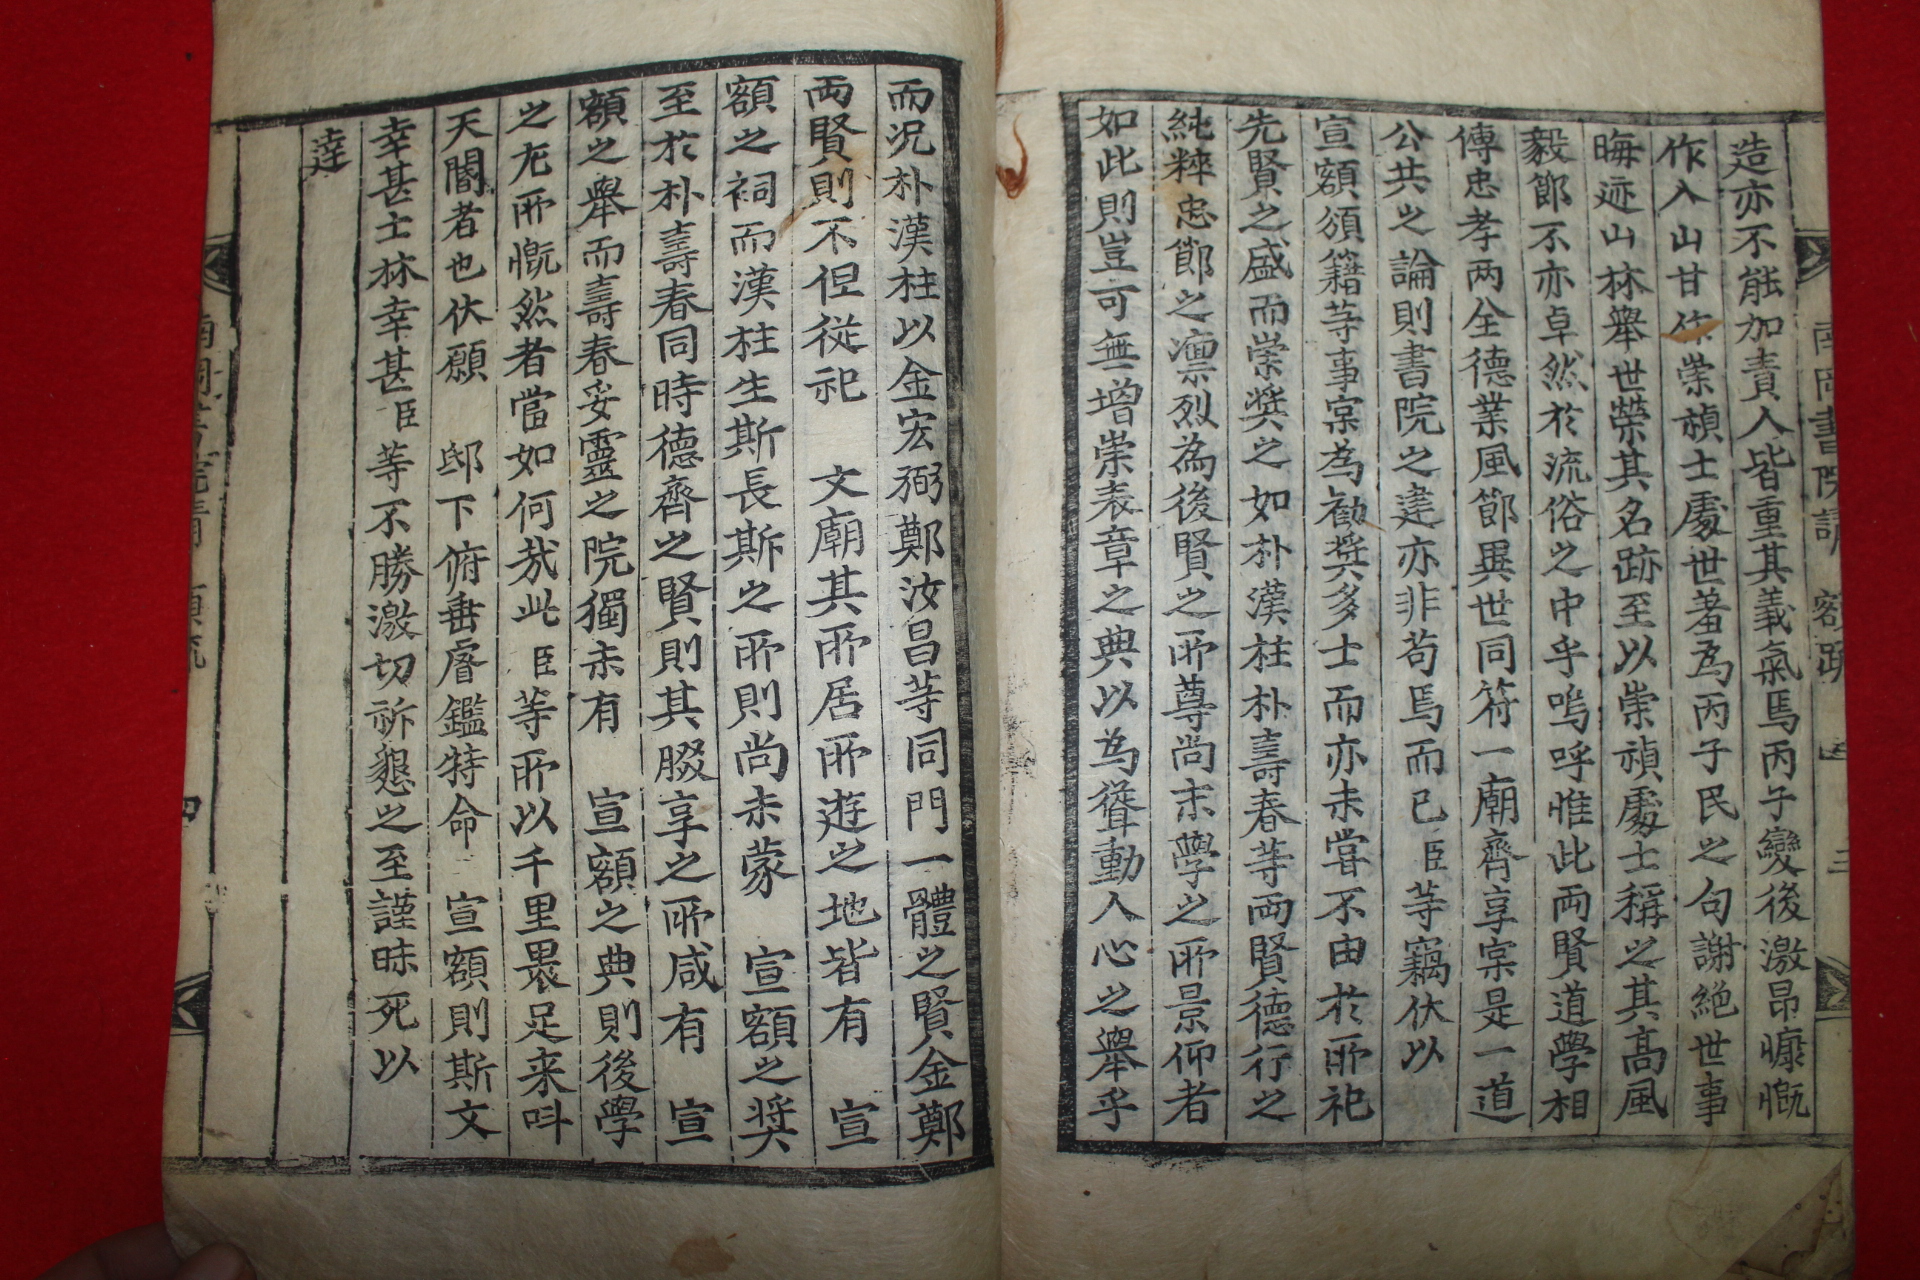 造亦不能加責人皆重其義氣焉丙子變後激昂慷慨
作入山甘作崇禎士處世羞為丙子民之句謝絶世事
晦迹山林舉世榮其名跡至以崇禎處士稱之其高風
毅節不亦卓然於流俗之中乎嗚呼惟此両賢道學相
傳忠孝两全德業風節異世同符一廟齊享寔是一道
公共之論則書院之建亦非苟焉而已臣等竊伏以
宣額頒籍等事寔為勸奬多士而亦未甞不由於所祀
先賢之盛而崇奬之如朴漢柱朴壽春等両賢德行之
純粹忠節之凛烈為後賢之所尊尚末學之所景仰者
如此則豈可無增崇表章之典以為聳動人心之舉乎
而况朴漢柱以金宏弼鄭汝昌等同門一體之賢金鄭
両賢則不但従祀　文廟其所居所遊之地皆有　宣
額之祠而漢柱生斯長斯之所則尚未蒙　宣額之奬
至於朴壽春同時德齊之賢則其腏享之所咸有　宣
額之舉而壽春妥靈之院獨未有　宣額之典則後學
之尤所慨然者當如何㢤此臣等所以千里褁足来呌
天閽者也伏願　邸下俯垂睿鑑特命　宣額則斯文
幸甚士林幸甚臣等不勝激切祈懇之至謹昧死以
達
南岡書院請　額疏　三
四